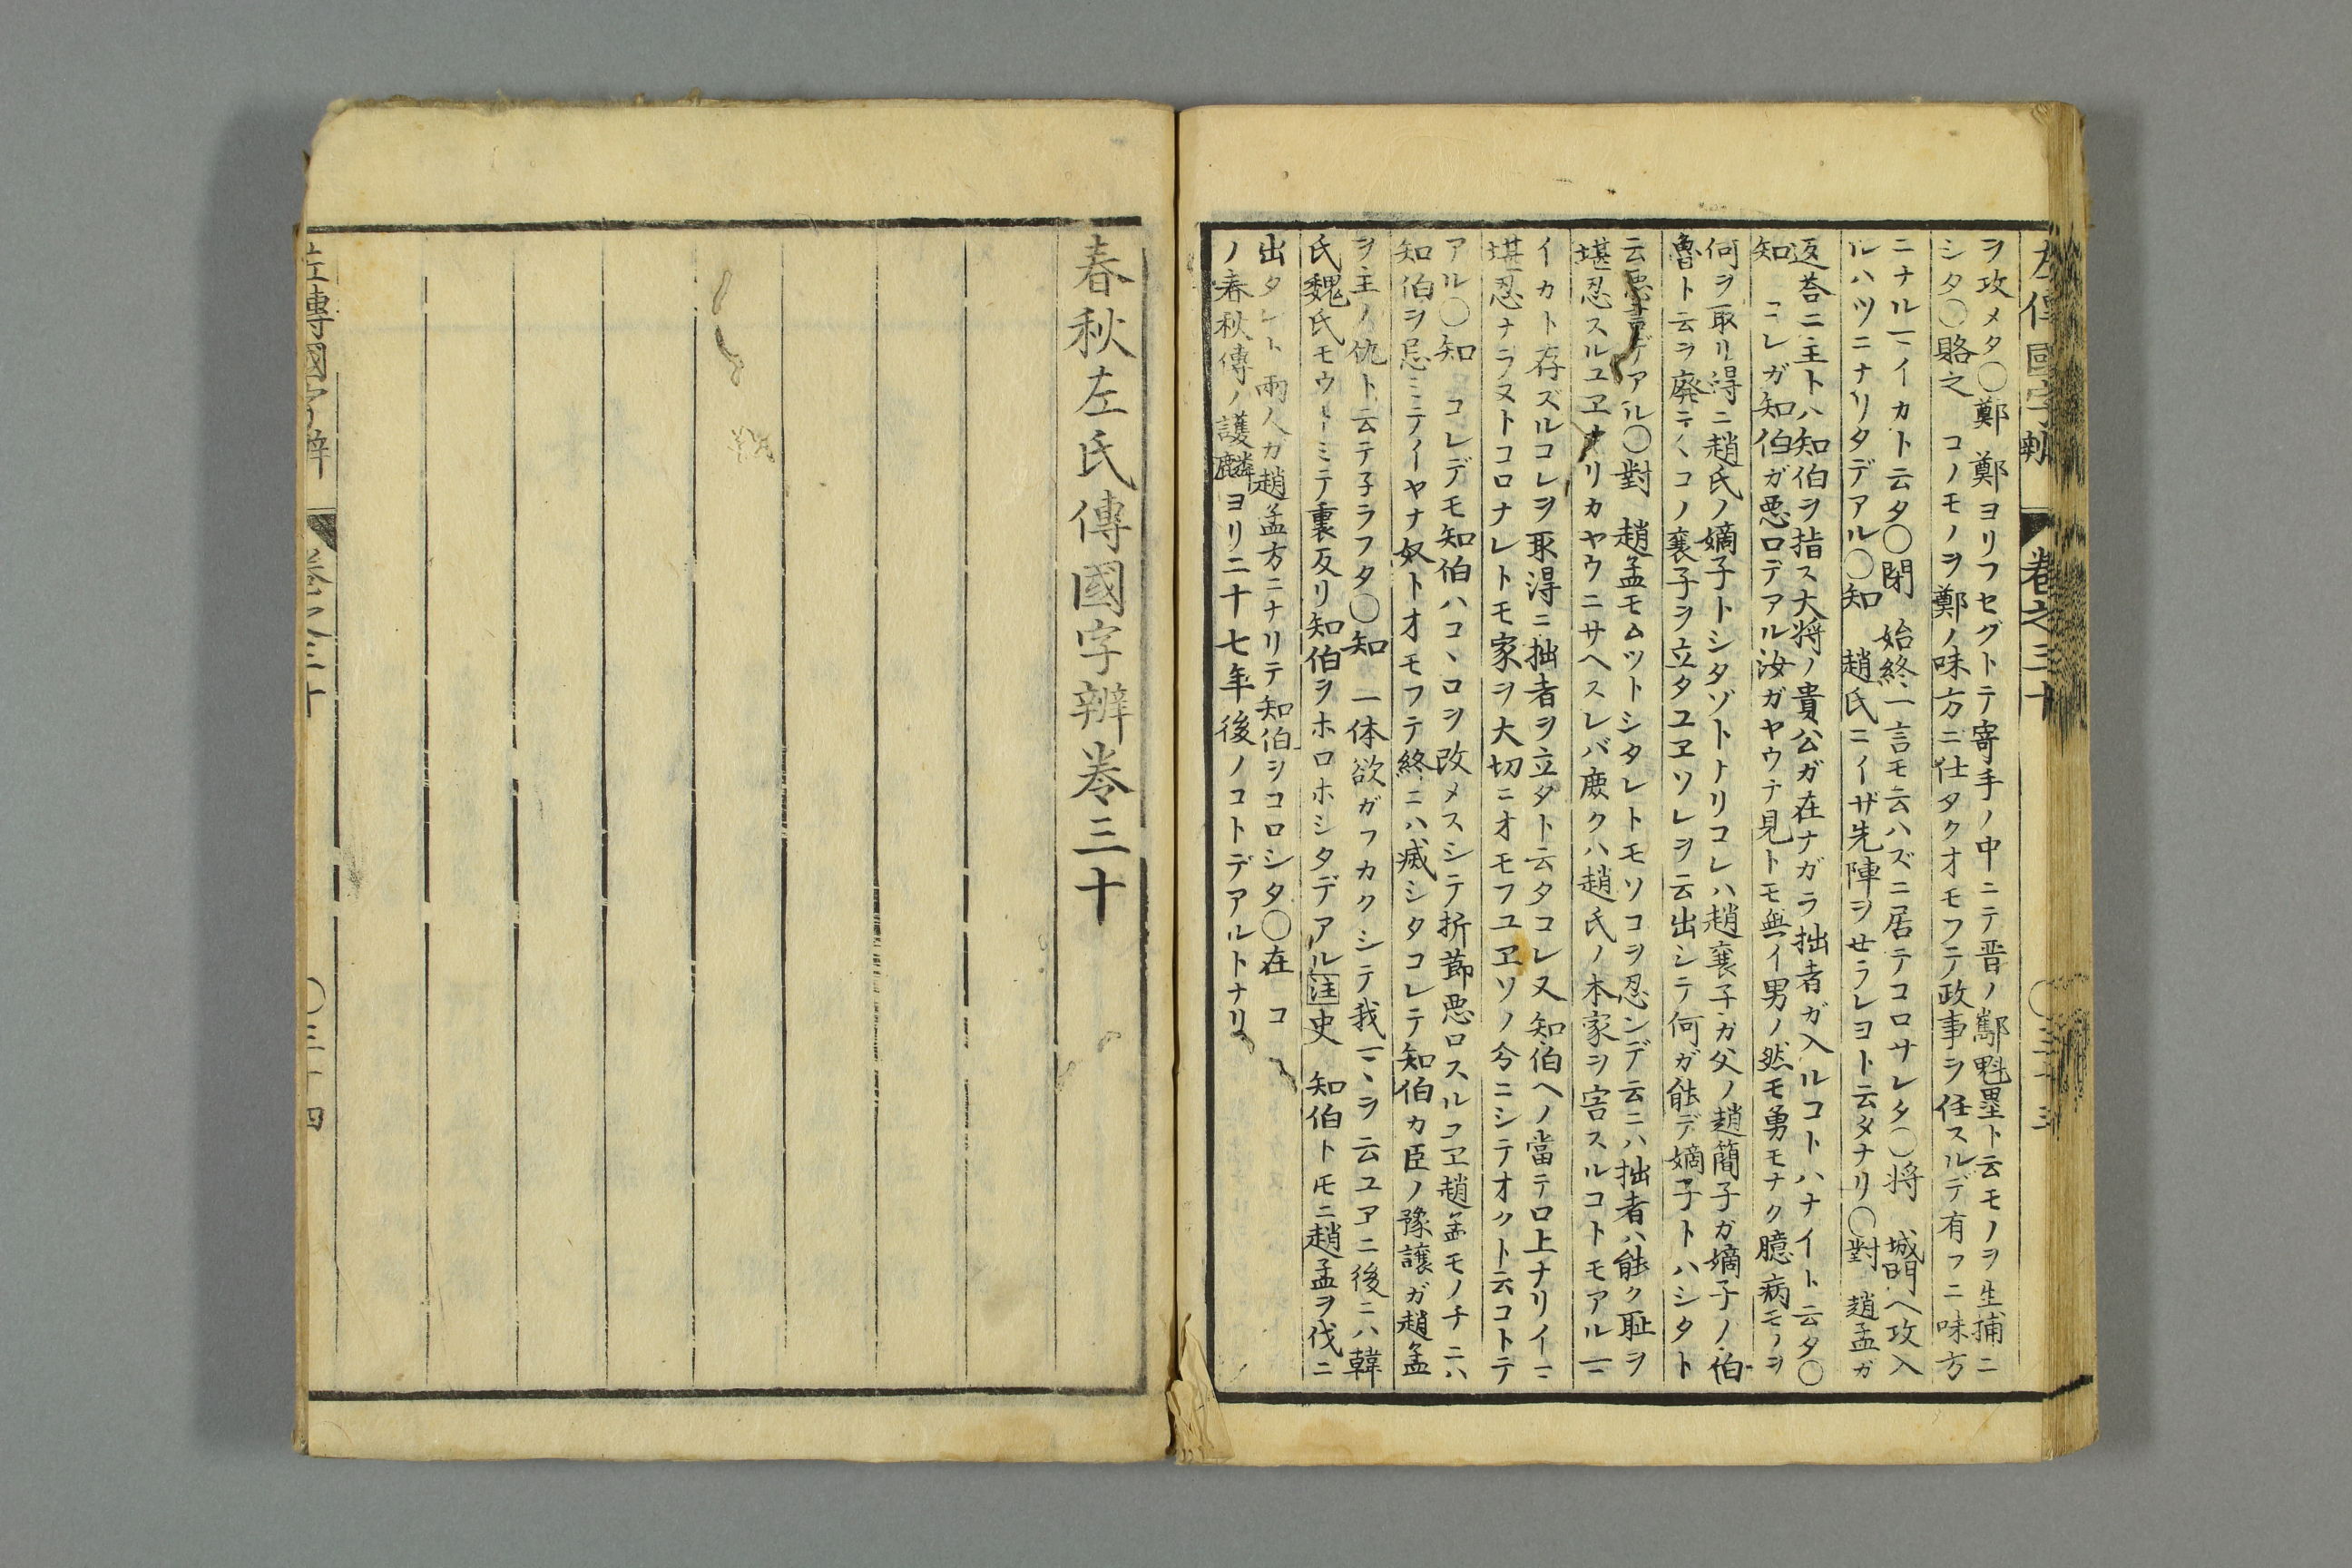 左傳國字辨 卷之三十 〇三十三
ヲ攻メタ〇鄭 鄭ヨリフセグトテ寄手ノ中ニテ晋ノ酅魁壘ト云モノヲ生捕ニ
シタ〇賂之 コノモノヲ鄭ノ味方ニ仕タクオモフテ政事ヲ任スルデ有フニ味方
ニナルーイカト云タ〇閉 始終一言モ云ハズニ居テコロサレタ〇将 城門ヘ攻入
ルハツニナリタデアル〇知 趙氏ニイザ先陣ヲせラレヨト云タナリ〇對 趙孟ガ
返荅ニ主トハ知伯ヲ指ス大将ノ貴公ガ在ナガラ拙者ガ入ルコトハナイト云タ〇
知 コレガ知伯ガ悪口デアル汝ガヤウナ見トモ無イ男ノ然モ勇モナク臆病モノヲ
何ヲ取リ得ニ趙氏ノ嫡子トシタゾトナリコレハ趙襄子ガ父ノ趙簡子ガ嫡子ノ伯
魯ト云ヲ廃テヽコノ襄子ヲ立タユヱソレヲ云出シテ何ガ能デ嫡子トハシタト
云悪言デアル〇對 趙孟モムツトシタレトモソコヲ忍ンデ云ニハ拙者ハ能ク耻ヲ
堪忍スルユヱナリカヤウニサヘスレバ庻クハ趙氏ノ本家ヲ害スルコトモアルーニ
イカト存ズルコレヲ取得ニ拙者ヲ立タト云タコレ又知伯ヘノ當テ口上ナリイーニ
堪忍ナラヌトコロナレトモ家ヲ大切ニオモフユヱソノ今ニシテオクト云コトテ
アル〇知 コレデモ知伯ハコヽロヲ改メスシテ折節悪口スルユヱ趙孟モノチニハ
知伯ヲ忌ミテイヤナ奴トオモフテ終ニハ滅シタコレテ知伯カ臣ノ豫譲ガ趙孟
ヲ主ノ仇ト云テ子ラフタ〇知 一体欲ガフカクシテ我ーヽヲ云ユヱニ後ニハ韓
氏魏氏モウトミテ裏反リ知伯ヲホロホシタデアル注史 知伯トモニ趙孟ヲ伐ニ
出タレト兩人ガ趙孟方ニナリテ知伯ヲコロシタ〇在 コ
ノ春秋傳ノ護麟ヨリ二十七年後ノコトデアルトナリ
春秋左氏傳國字辨巻三十
左傳國字辨 卷之三十 〇三十四